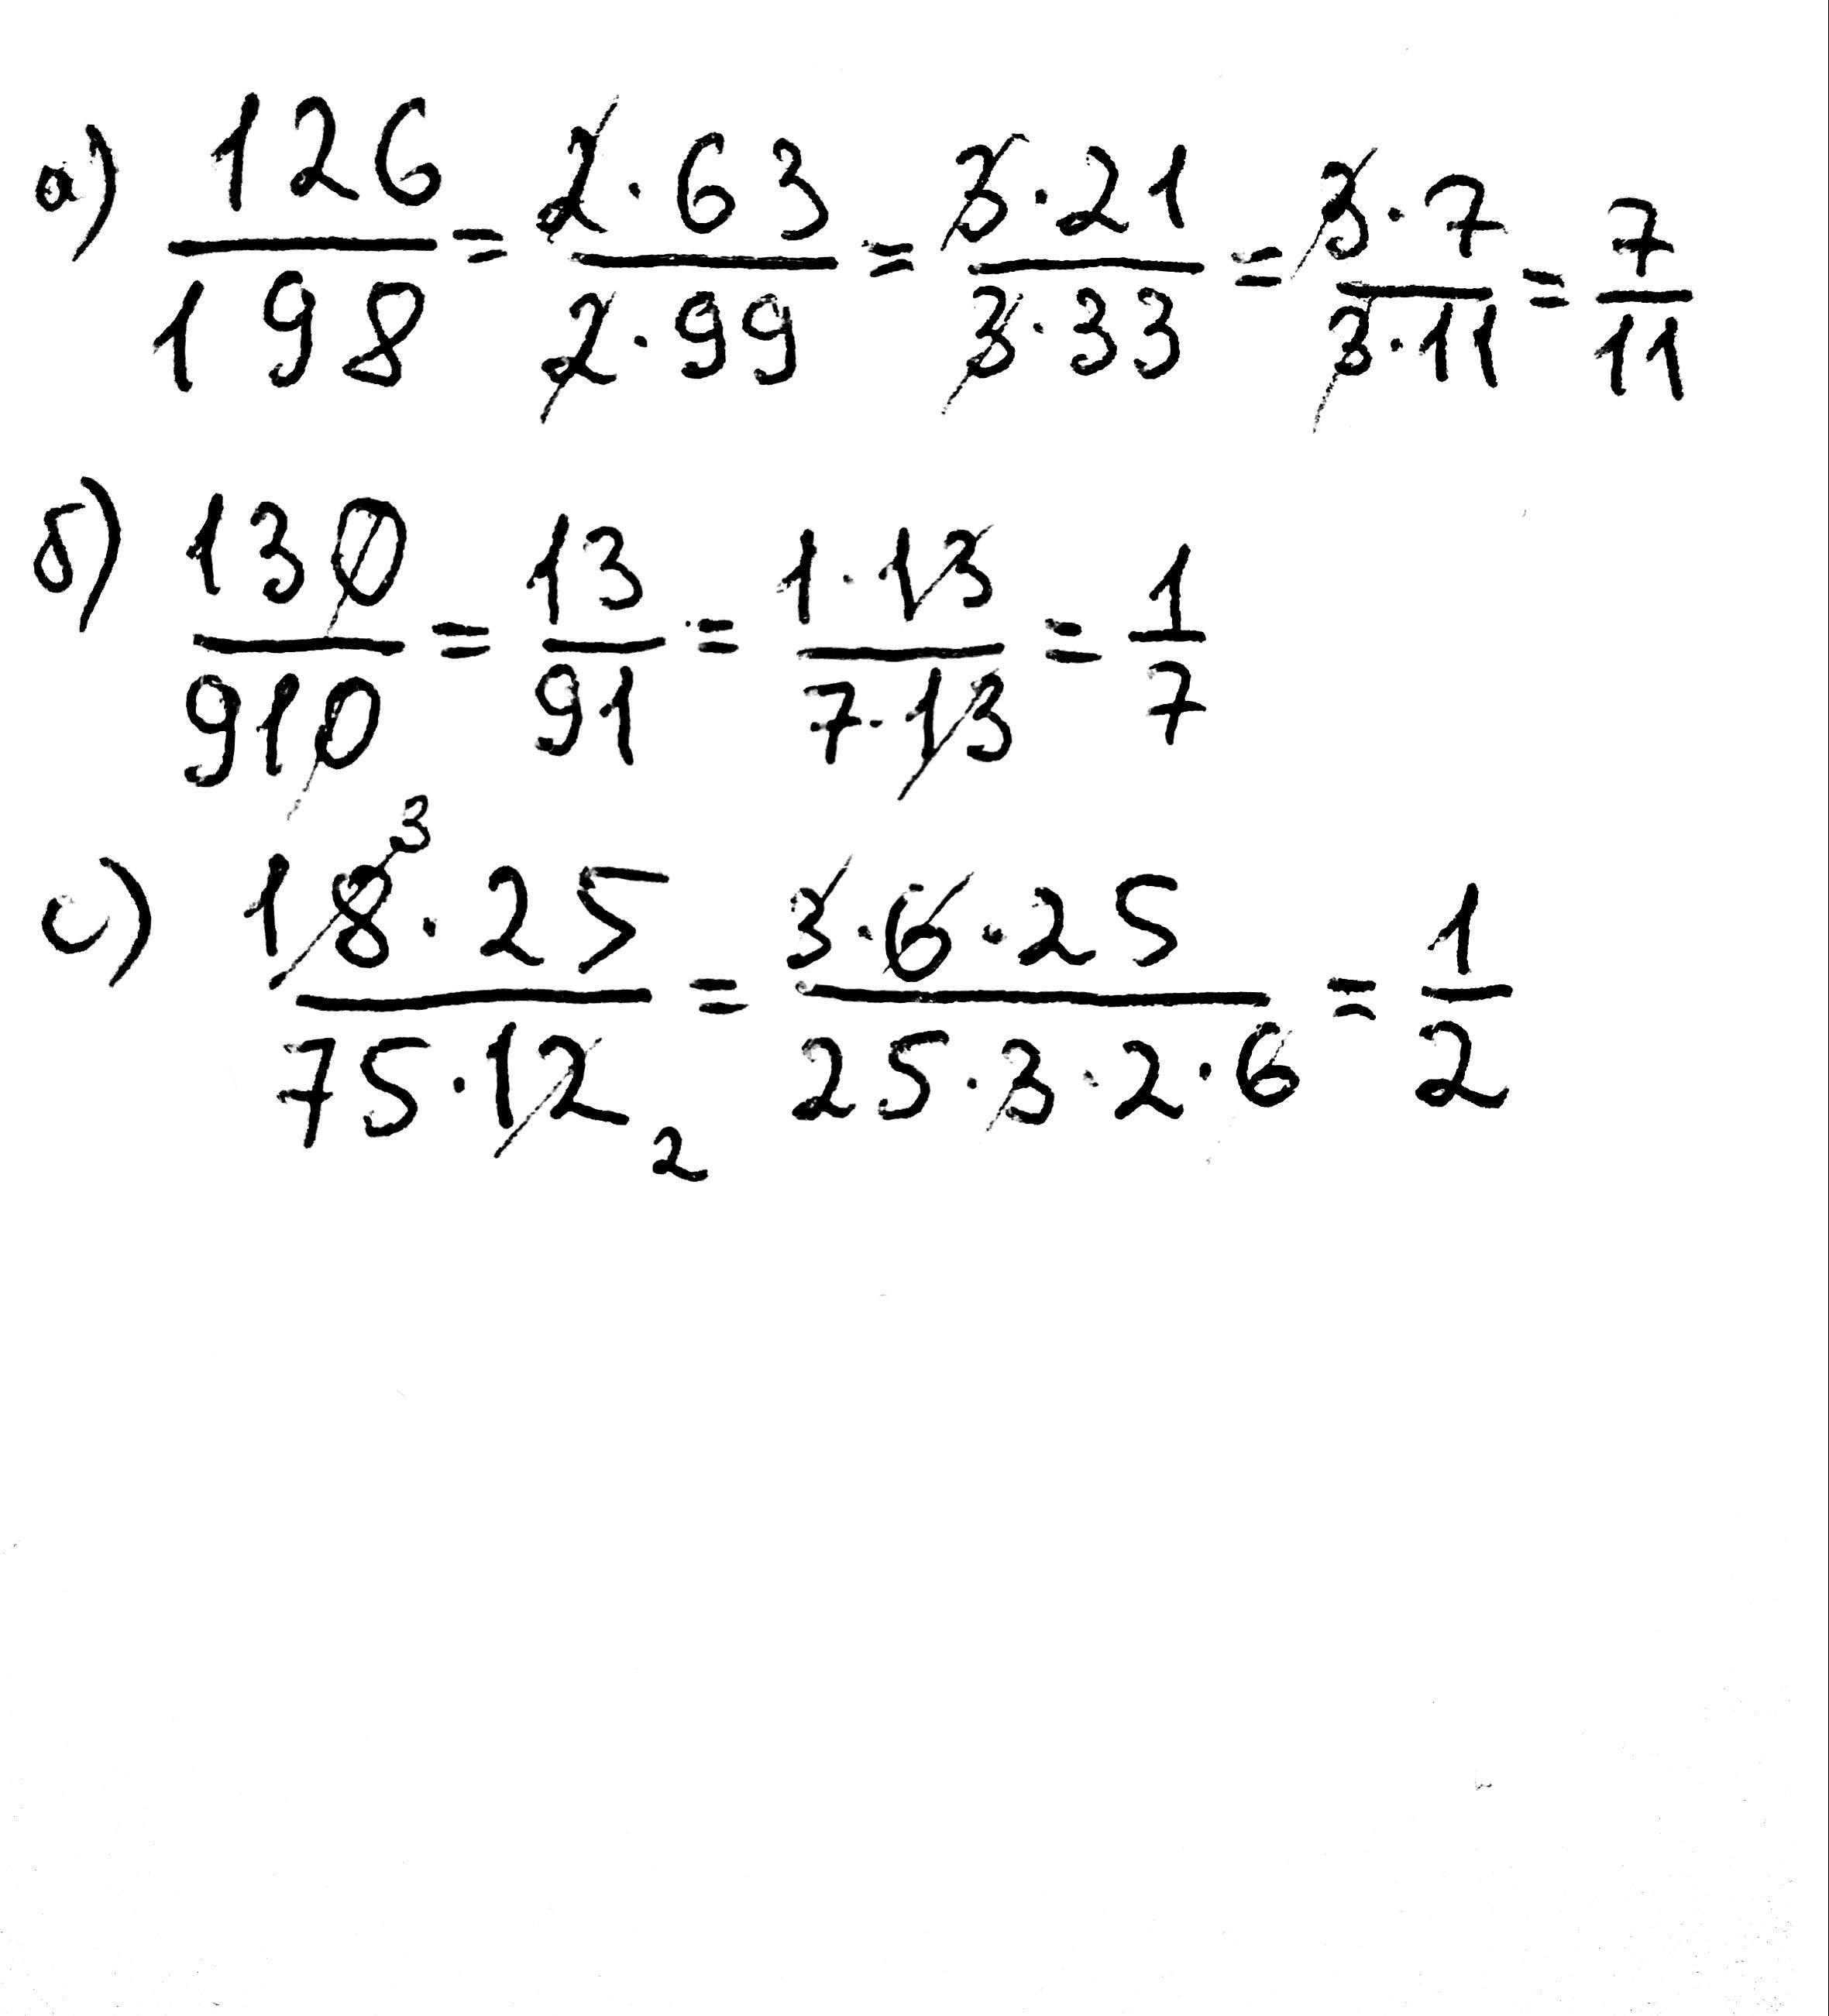 а) 126/198 = 2·63/2·99 = 3·21/3·33 = 3·7/3·11 = 7/11
б) 130/910 = 13/91 = 1·13/7·13 = 1/7
с) 18³·25/75·12₂ = 3·6·25/25·3·2·6 = 1/2